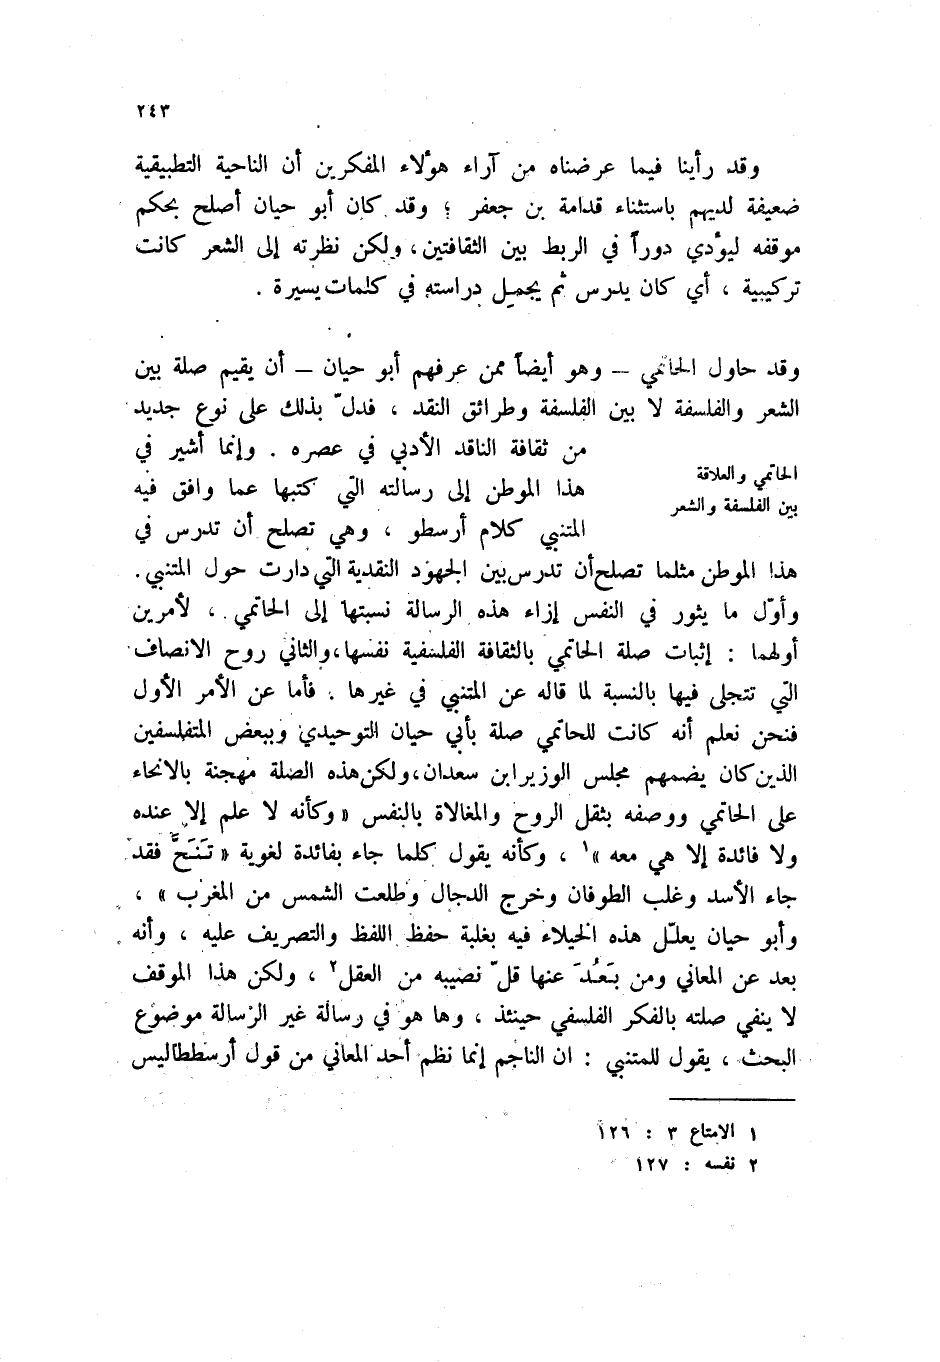 ٢٤٣
وقد رأينا فيما عرضناه من آراء هؤلاء المفكرين أن الناحية التطبيقية
ضعيفة لديهم باستثناء قدامة بن جعفر ؛ وقد كان أبو حيان أصلح بحكم
موقفه ليؤدي دوراً في الربط بين الثقافتين، ولكن نظرته إلى الشعر كانت
تركيبية ، أي كان يدرس ثم يجمل دراسته في كلمات يسيرة .
وقد حاول الحاتمي – وهو أيضاً ممن عرفهم أبو حيان – أن يقيم صلة بين
الشعر والفلسفة لا بين الفلسفة وطرائق النقد ، فدلّ بذلك على نوع جديد
من ثقافة الناقد الأدبي في عصره . وإنما أشير في
الحاتمي والعلاقة
بين الفلسفة والشعر
هذا الموطن إلى رسالته التي كتبها عما وافق فيه
المتنبي كلام أرسطو ، وهي تصلح أن تدرس في
هذا الموطن مثلما تصلح أن تدرس بين الجهود النقدية التي دارت حول المتنبي .
وأوّل ما يثور في النفس إزاء هذه الرسالة نسبتها إلى الحاتمي ، لأمرين
أولهما : إثبات صلة الحاتمي بالثقافة الفلسفية نفسها، والثاني روح الانصاف
التي تتجلى فيها بالنسبة لما قاله عن المتنبي في غيرها . فأما عن الأمر الأول
فنحن نعلم أنه كانت للحاتمي صلة بأبي حيان التوحيدي وببعض المتفلسفين
الذين كان يضمهم مجلس الوزير ابن سعدان، ولكن هذه الصلة مهجنة بالانحاء
على الحاتمي ووصفه بثقل الروح والمغالاة بالنفس « وكأنه لا علم إلا عنده
ولا فائدة إلا هي معه »١ ، وكأنه يقول كلما جاء بفائدة لغوية « تَنَحَّ فقد
جاء الأسد وغلب الطوفان وخرج الدجال وطلعت الشمس من المغرب » ،
وأبو حيان يعلّل هذه الخيلاء فيه بغلبة حفظ اللفظ والتصريف عليه ، وأنه
بعد عن المعاني ومن بَعُدَ عنها قلّ نصيبه من العقل٢ ، ولكن هذا الموقف
لا ينفي صلته بالفكر الفلسفي حينئذ ، وها هو في رسالة غير الرسالة موضوع
البحث ، يقول للمتنبي : ان الناجم إنما نظم أحد المعاني من قول أرسططاليس
١ الامتاع ٣ : ١٢٦
٢ نفسه : ١٢٧